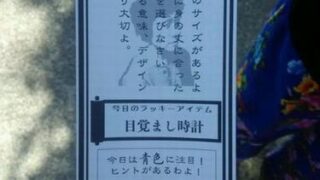 のサイズがあるよ
に身の丈に合った
を選びなさい
る意味、デザイン
り大切よ。
今日のラッキーアイテム
目覚まし時計
今日は青色に注目!
ヒントがあるわよ!